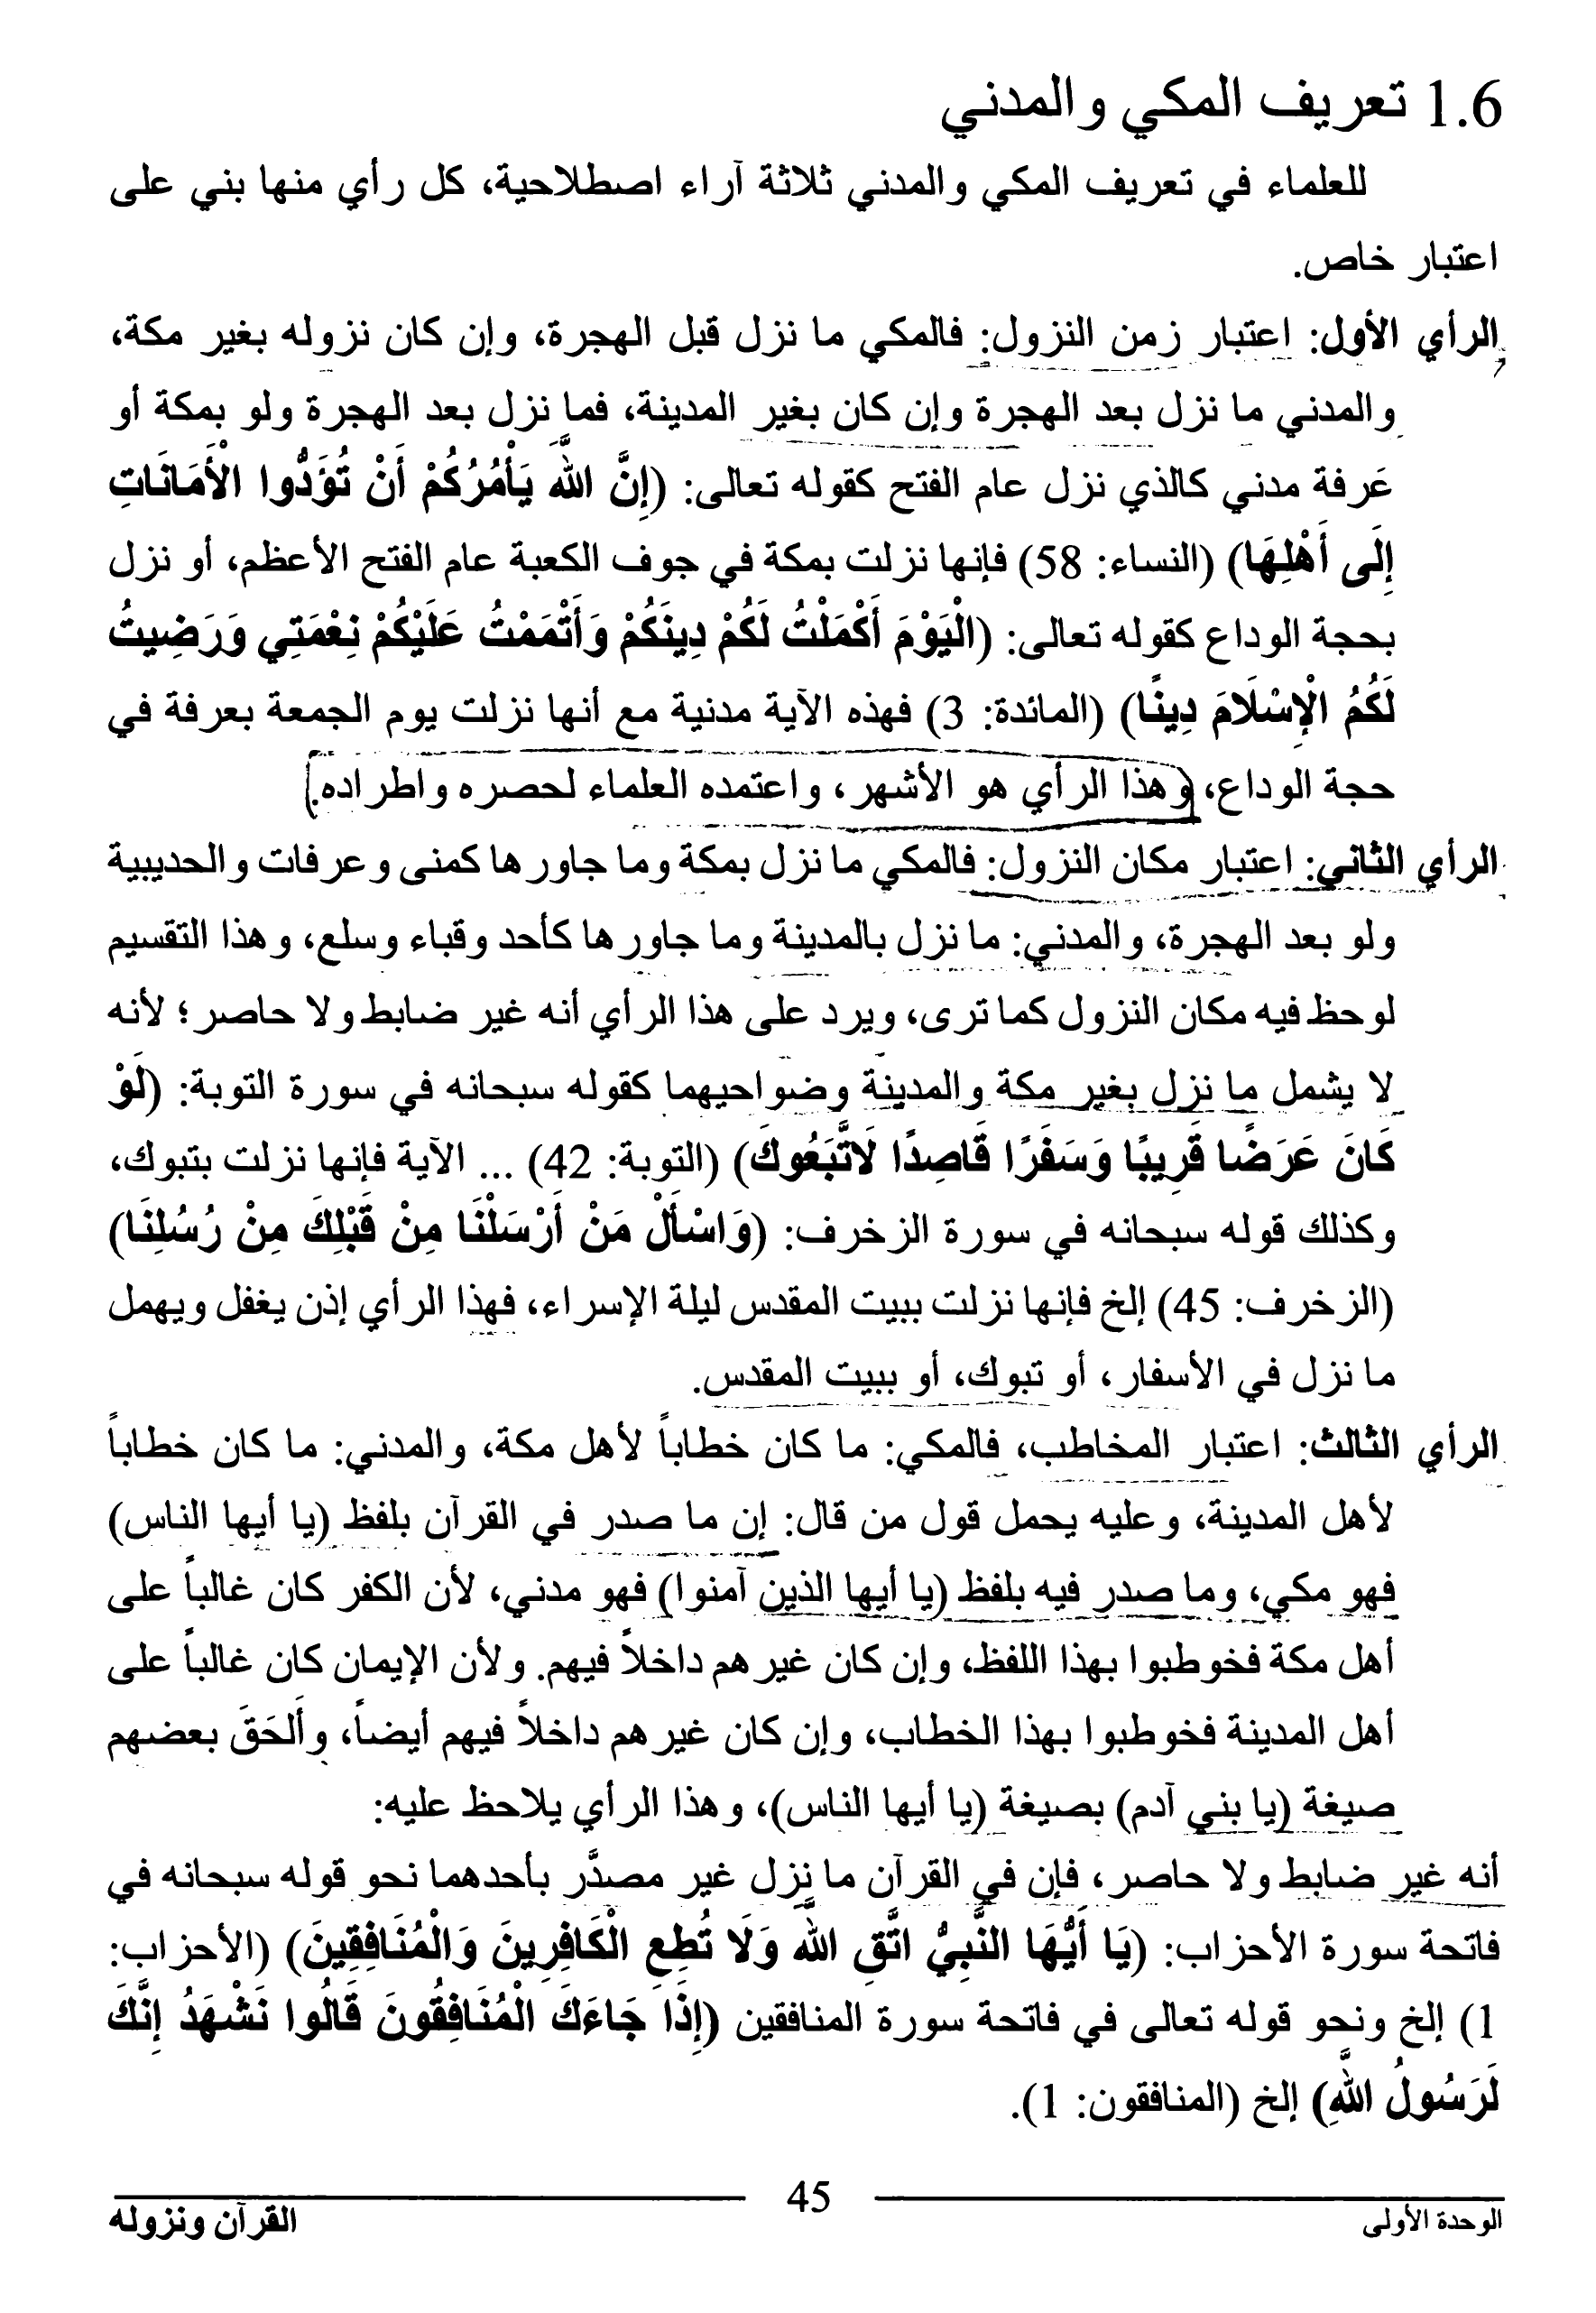 1.6 تعريف المكي والمدني
للعلماء في تعريف المكي والمدني ثلاثة آراء اصطلاحية، كل رأي منها بني على
اعتبار خاص.
الرأي الأول: اعتبار زمن النزول: فالمكي ما نزل قبل الهجرة، وإن كان نزوله بغير مكة،
والمدني ما نزل بعد الهجرة وإن كان بغير المدينة، فما نزل بعد الهجرة ولو بمكة أو
عَرفة مدني كالذي نزل عام الفتح كقوله تعالى: (إِنَّ اللَّهَ يَأْمُرُكُمْ أَنْ تُؤَدُّوا الْأَمَانَاتِ
إِلَى أَهْلِهَا) (النساء: 58) فإنها نزلت بمكة في جوف الكعبة عام الفتح الأعظم، أو نزل
بحجة الوداع كقوله تعالى: (الْيَوْمَ أَكْمَلْتُ لَكُمْ دِينَكُمْ وَأَتْمَمْتُ عَلَيْكُمْ نِعْمَتِي وَرَضِيتُ
لَكُمُ الْإِسْلَامَ دِينًا) (المائدة: 3) فهذه الآية مدنية مع أنها نزلت يوم الجمعة بعرفة في
حجة الوداع، وهذا الرأي هو الأشهر، واعتمده العلماء لحصره واطراده.
الرأي الثاني: اعتبار مكان النزول: فالمكي ما نزل بمكة وما جاورها كمنى وعرفات والحديبية
ولو بعد الهجرة، والمدني: ما نزل بالمدينة وما جاورها كأحد وقباء وسلع، وهذا التقسيم
لوحظ فيه مكان النزول كما ترى، ويرد على هذا الرأي أنه غير ضابط ولا حاصر؛ لأنه
لا يشمل ما نزل بغير مكة والمدينة وضواحيهما كقوله سبحانه في سورة التوبة: (لَوْ
كَانَ عَرَضًا قَرِيبًا وَسَفَرًا قَاصِدًا لَاتَّبَعُوكَ) (التوبة: 42) ... الآية فإنها نزلت بتبوك،
وكذلك قوله سبحانه في سورة الزخرف: (وَاسْأَلْ مَنْ أَرْسَلْنَا مِنْ قَبْلِكَ مِنْ رُسُلِنَا)
(الزخرف: 45) إلخ فإنها نزلت ببيت المقدس ليلة الإسراء، فهذا الرأي إذن يغفل ويهمل
ما نزل في الأسفار، أو تبوك، أو ببيت المقدس.
الرأي الثالث: اعتبار المخاطب، فالمكي: ما كان خطاباً لأهل مكة، والمدني: ما كان خطاباً
لأهل المدينة، وعليه يحمل قول من قال: إن ما صدر في القرآن بلفظ (يا أيها الناس)
فهو مكي، وما صدر فيه بلفظ (يا أيها الذين آمنوا) فهو مدني، لأن الكفر كان غالباً على
أهل مكة فخوطبوا بهذا اللفظ، وإن كان غيرهم داخلاً فيهم. ولأن الإيمان كان غالباً على
أهل المدينة فخوطبوا بهذا الخطاب، وإن كان غيرهم داخلاً فيهم أيضاً، وألحَقَ بعضهم
صيغة (يا بني آدم) بصيغة (يا أيها الناس)، وهذا الرأي يلاحظ عليه:
أنه غير ضابط ولا حاصر، فإن في القرآن ما نزل غير مصدَّر بأحدهما نحو قوله سبحانه في
فاتحة سورة الأحزاب: (يَا أَيُّهَا النَّبِيُّ اتَّقِ اللَّهَ وَلَا تُطِعِ الْكَافِرِينَ وَالْمُنَافِقِينَ) (الأحزاب:
1) إلخ ونحو قوله تعالى في فاتحة سورة المنافقين (إِذَا جَاءَكَ الْمُنَافِقُونَ قَالُوا نَشْهَدُ إِنَّكَ
لَرَسُولُ اللَّهِ) إلخ (المنافقون: 1).
45
الوحدة الأولى
القرآن ونزوله